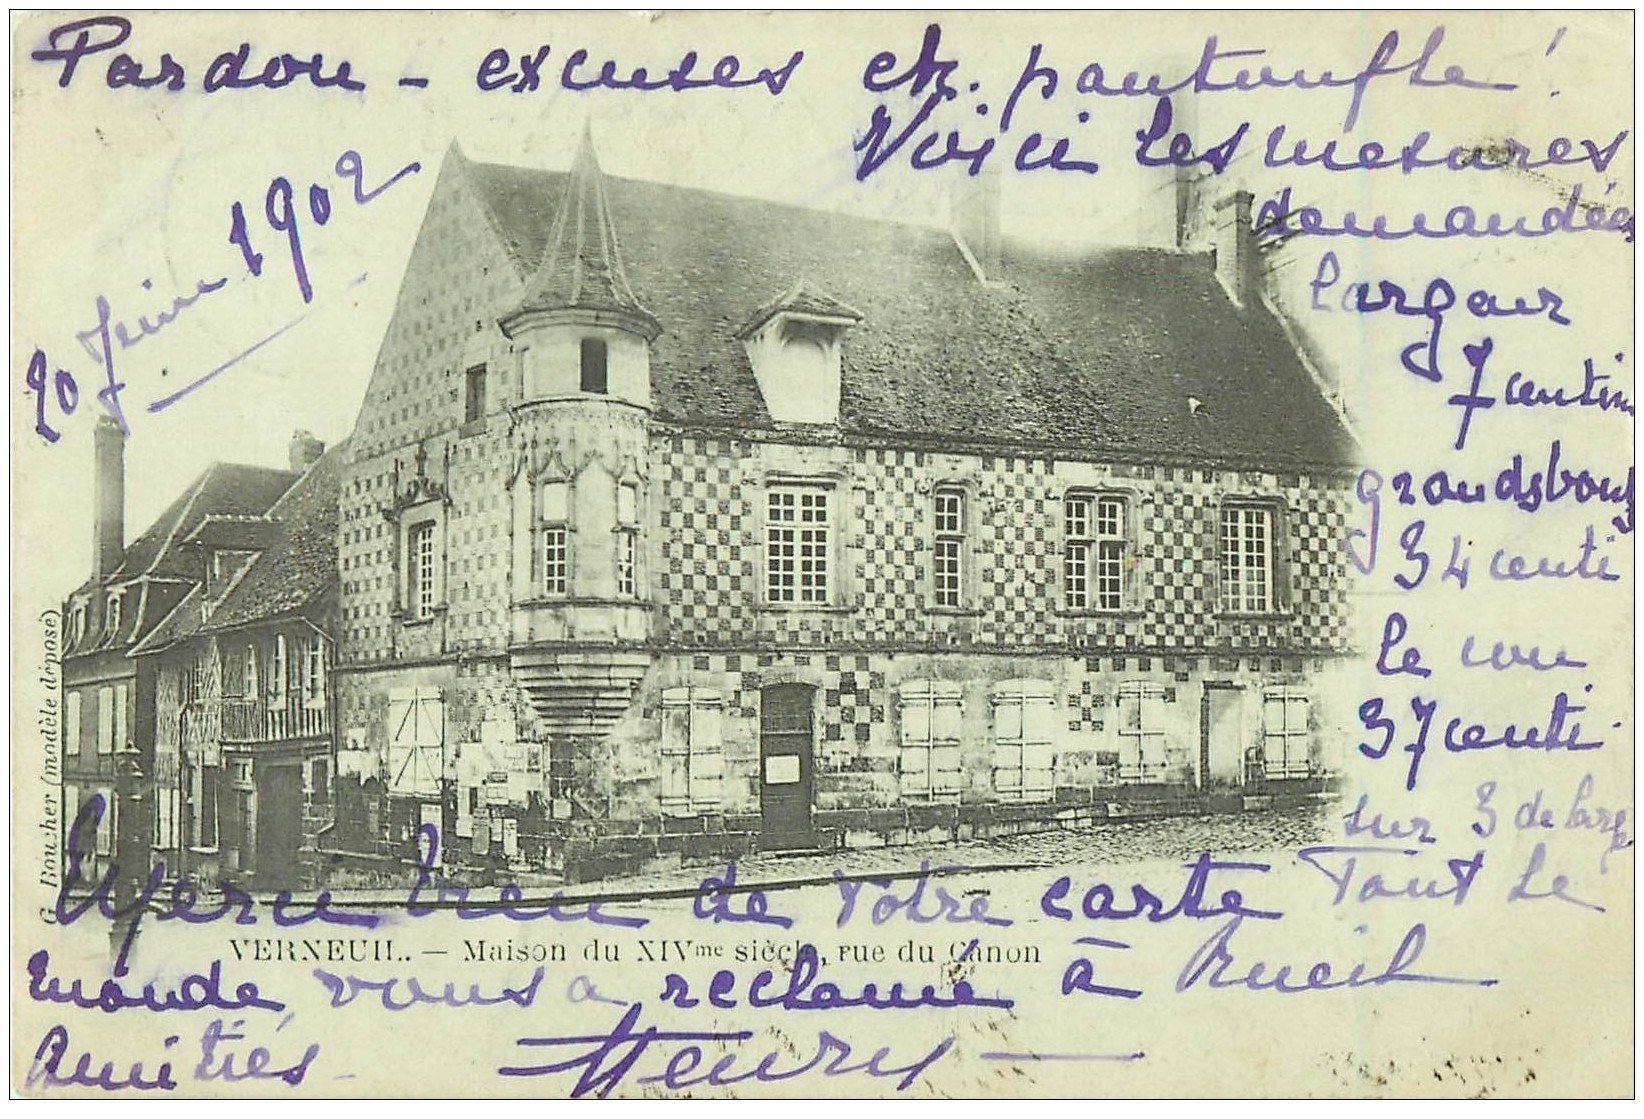 Pardon – excuses et. pantoufle !
Voici les mesures
demandées
largeur
7 centim
grands bouts
34 centi
le cou
37 centi.
sur 3 de large
20 Juin 1902
G. Boucher (modèle déposé)
Merci bien de votre carte Tout le
VERNEUIL. — Maison du XIVme siècle, rue du Canon
monde vous a réclamé à Rueil
Amitiés Henry